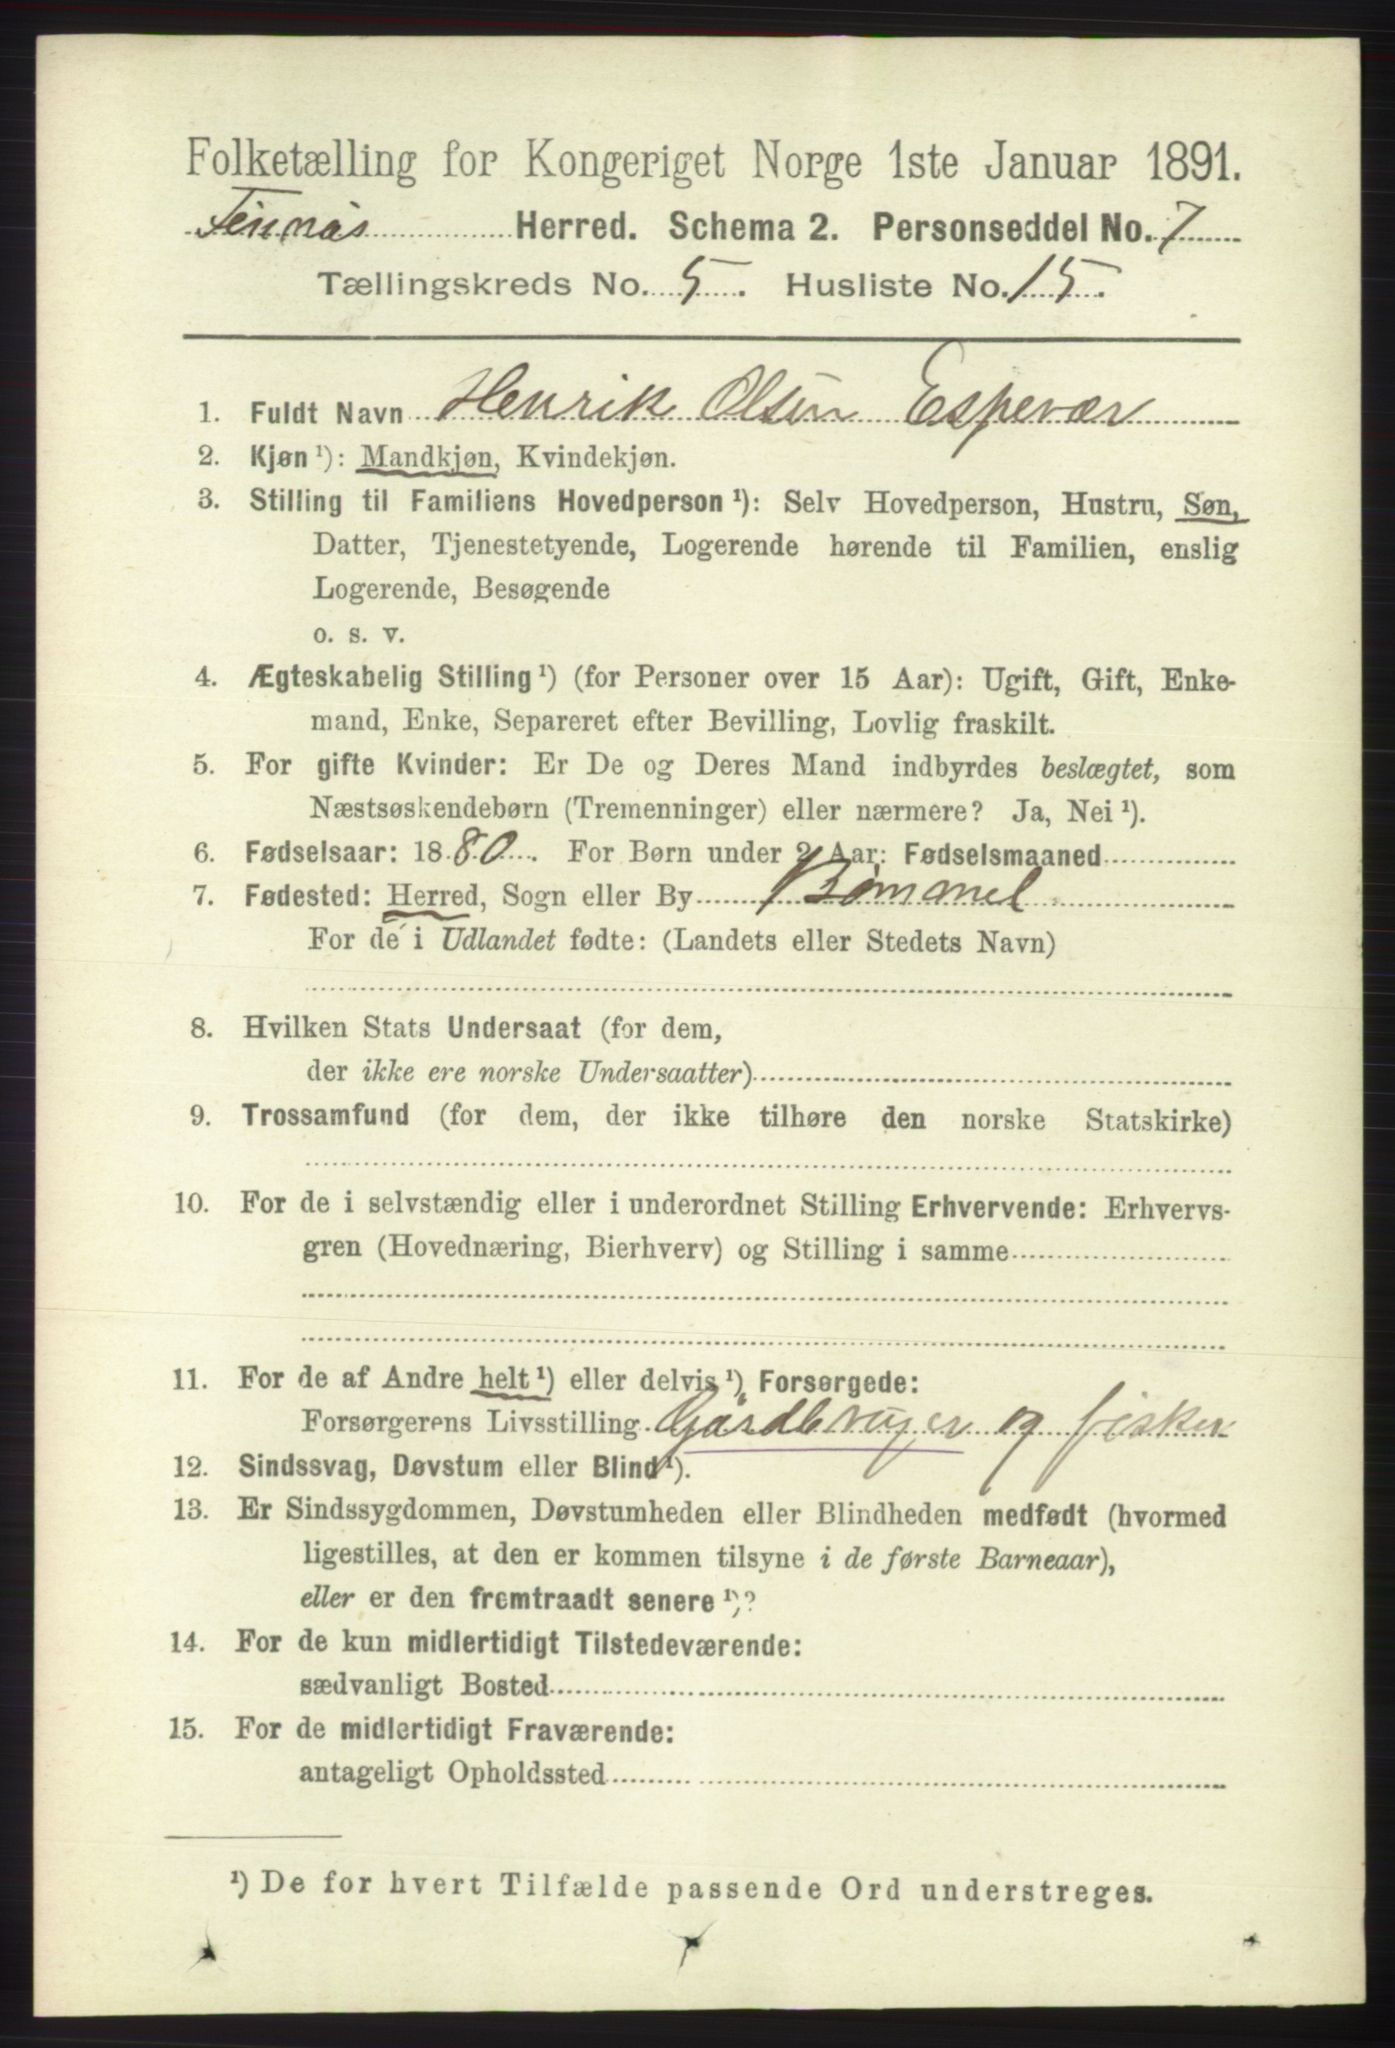 Folketælling for Kongeriget Norge 1ste Januar 1891.
Finnås Herred. Schema 2. Personseddel No. 7
Tællingskreds No. 5. Husliste No. 15.
1. Fuldt Navn Henrik Olsen Espevær
2. Kjøn ¹): Mandkjøn, Kvindekjøn.
3. Stilling til Familiens Hovedperson ¹): Selv Hovedperson, Hustru, Søn,
Datter, Tjenestetyende, Logerende hørende til Familien, enslig
Logerende, Besøgende
o. s. v.
4. Ægteskabelig Stilling ¹) (for Personer over 15 Aar): Ugift, Gift, Enke-
mand, Enke, Separeret efter Bevilling, Lovlig fraskilt.
5. For gifte Kvinder: Er De og Deres Mand indbyrdes beslægtet, som
Næstsøskendebørn (Tremenninger) eller nærmere? Ja, Nei ¹).
6. Fødselsaar: 1880. For Børn under 2 Aar: Fødselsmaaned
7. Fødested: Herred, Sogn eller By Bømmel
For de i Udlandet fødte: (Landets eller Stedets Navn)
8. Hvilken Stats Undersaat (for dem,
der ikke ere norske Undersaatter)
9. Trossamfund (for dem, der ikke tilhøre den norske Statskirke)
10. For de i selvstændig eller i underordnet Stilling Erhvervende: Erhvervs-
gren (Hovednæring, Bierhverv) og Stilling i samme
11. For de af Andre helt ¹) eller delvis ¹) Forsørgede:
Forsørgerens Livsstilling Gårdbruger og fisker
12. Sindssvag, Døvstum eller Blind ¹).
13. Er Sindssygdommen, Døvstumheden eller Blindheden medfødt (hvormed
ligestilles, at den er kommen tilsyne i de første Barneaar),
eller er den fremtraadt senere ¹)?
14. For de kun midlertidigt Tilstedeværende:
sædvanligt Bosted
15. For de midlertidigt Fraværende:
antageligt Opholdssted
¹) De for hvert Tilfælde passende Ord understreges.